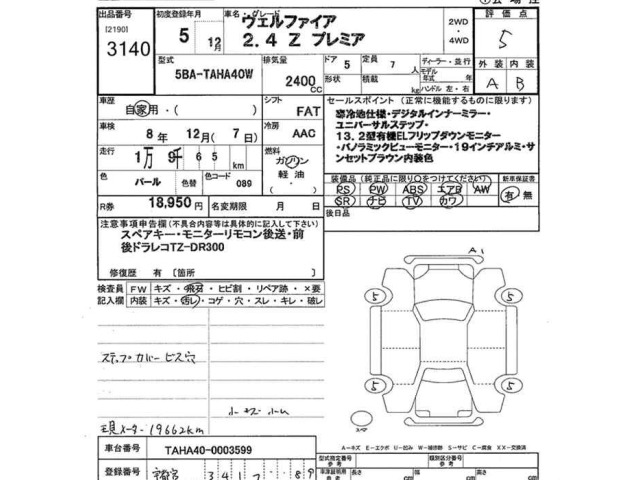 出品番号 初度登録年月 車名・グレード 評価点
[2190]
3140
5 12月
ヴェルファイア
2.4 Z プレミア
2WD
・
4WD
5
型式 排気量 ドア 5 定員 7 人 ディーラー・並行 外装 内装
5BA-TAHA40W 2400 CC
形状 積載 kg モデル年式 年式 ハンドル 左・右
A B
車歴 自家用・( ) シフト FAT
セールスポイント (正常に機能するものに限ります)
寒冷地仕様・デジタルインナーミラー・
ユニバーサルステップ・
13.2型有機ELフリップダウンモニター
・パノラミックビューモニター・19インチアルミ・サ
ンセットブラウン内装色
車検 8年 12月( 7日) 冷房 AAC
走行 1万 9千 6 5 km 燃料 ガソリン
軽油
・
色 パール 色替 色コード 089
装備品(純正品に限り○をつけてください) 新車保証書
PS PW ABS エアB AW 有・無
SR ナビ TV カワ
R券 18,950円 名変期限 月 日
後日品
注意事項申告欄(不具合内容等は具体的に記入して下さい)
スペアキー・モニターリモコン後送・前
後ドラレコTZ-DR300
修復歴 有 [箇所 ]
検査員 FW キズ・飛石・ヒビ割・リペア跡・×要
記入欄 内装 キズ・汚レ・コゲ・穴・スレ・キレ・破レ
A1
5 5
ステップカバービス穴
5 5
スペア
現メーター 19662km
A-キズ E-エクボ U-凹み W-補修跡 S-サビ C-腐食 XX-交換済
車台番号 TAHA40-0003599
型式指定番号 参考 類別区分番号 参考
登録番号 3 4 1 7 89
車庫証明用 参考 長さ cm 幅 cm 高さ cm